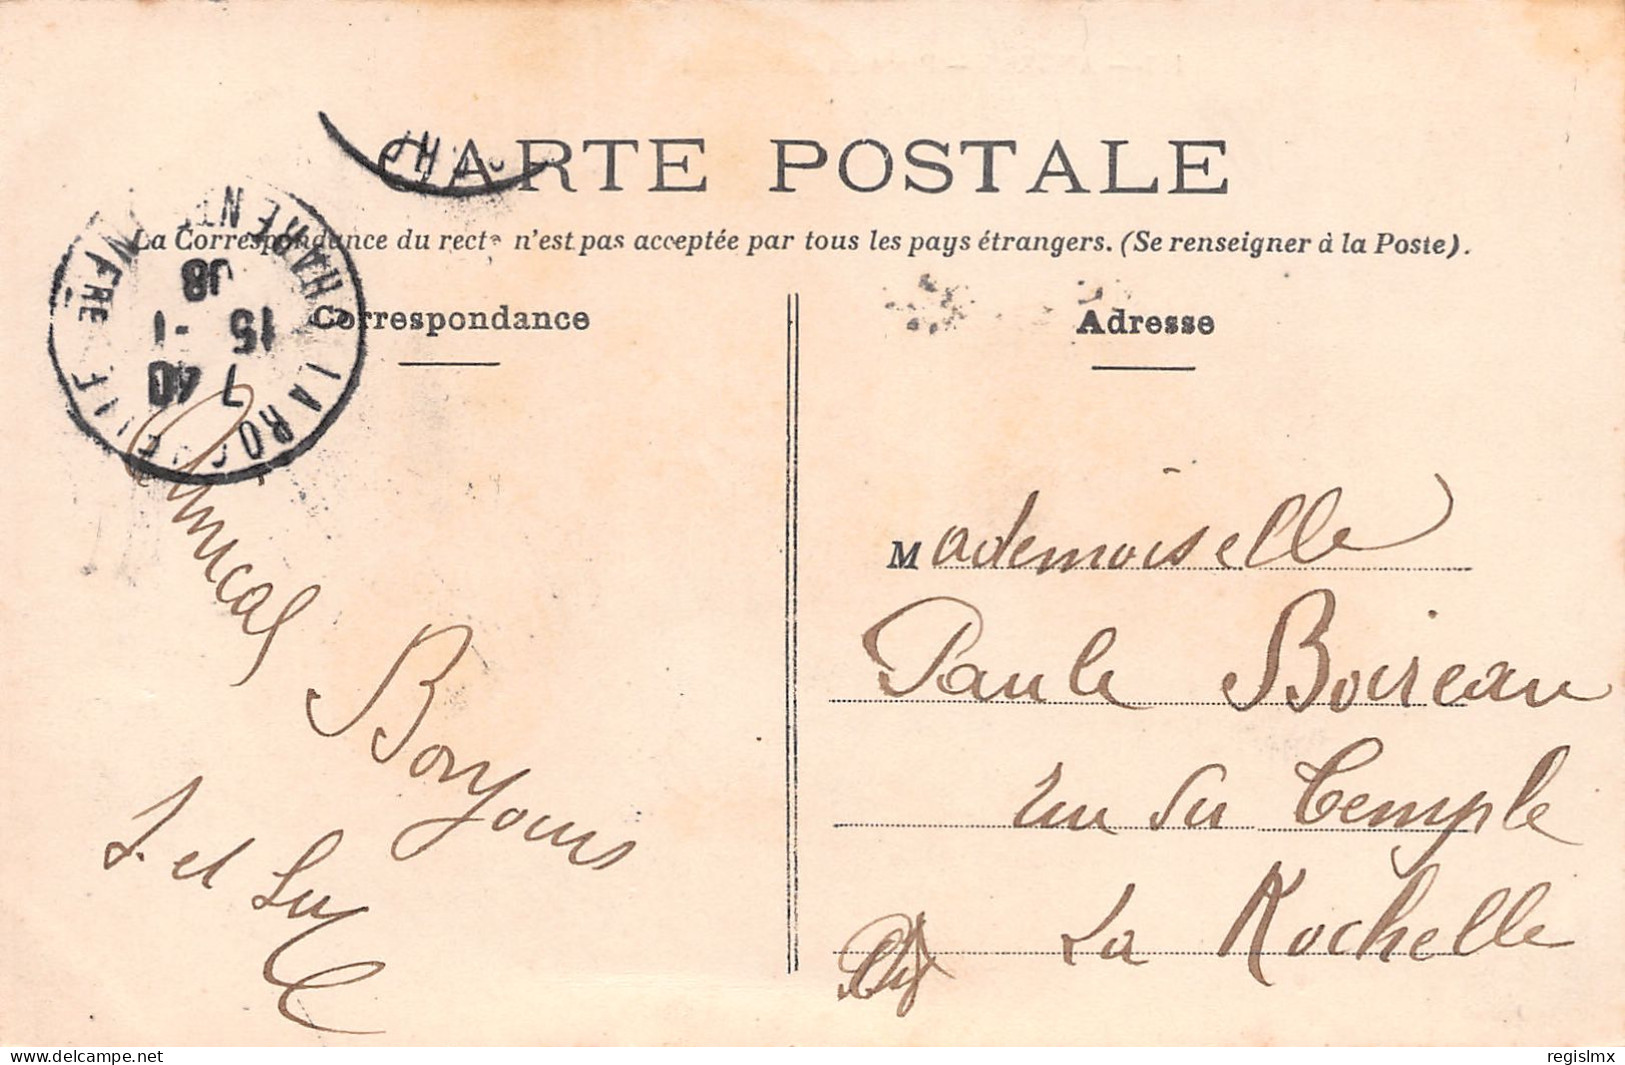 CARTE POSTALE
La Correspondance du recto n'est pas acceptée par tous les pays étrangers. (Se renseigner à la Poste).
Correspondance
Adresse
LA ROCHELLE
CHARENTE INFRE
7 40
15 -1
08
Amical
Bonjour
J. et Luc
Mademoiselle
Paule Boireau
rue du Temple
La Rochelle
delcampe.net
regislmx